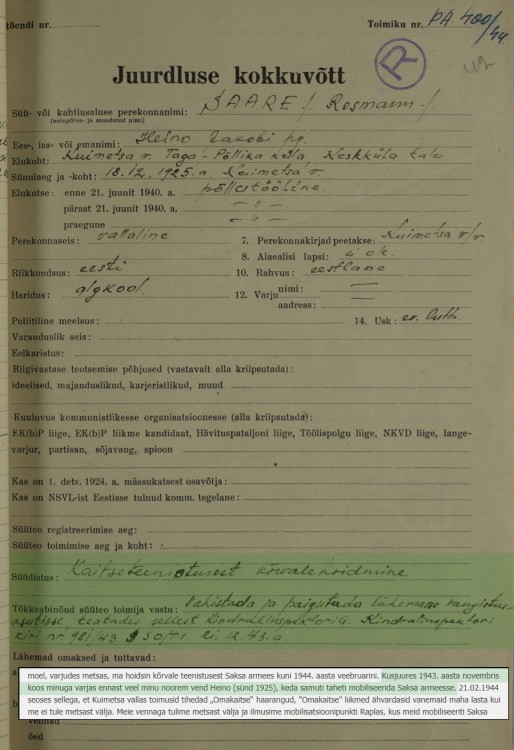 tõendi nr.
Toimiku nr. PA 400/44.
R
42
Juurdluse kokkuvõtt
Süü- või kahtlusaluse perekonnanimi: SAARE /. Rosmann ./
(neiupõlve- ja muudetud nimi)
Ees-, isa- või emanimi: Heino Jakobi pg.
Elukoht: Kuimetsa v. Taga-Põllika küla, Keskküla talu
Sünniaeg ja -koht: 18.12.1925.a. Kuimetsa v.
Elukutse: enne 21. juunit 1940. a. põllutööline
pärast 21. juunit 1940. a. - " -
praegune - " -
Perekonnaseis: vallaline 7. Perekonnakirjad peetakse: Kuimetsa v/v
8. Alaealisi lapsi: ei ole.
Riikkondsus: eesti 10. Rahvus: eestlane
Haridus: algkool. 12. Varju nimi: —
aadress: —
Poliitiline meelsus: 14. Usk: ev. luth.
Varanduslik seis:
Eelkaristus:
Riigivastase teotsemise põhjused (vastavalt alla kriipsutada):
ideelised, majanduslikud, karjeristlikud, muud
Kuuluvus kommunistlikesse organisatsioonesse (alla kriipsutada):
EK(b)P liige, EK(b)P liikme kandidaat, Hävituspataljoni liige, Töölispolgu liige, NKVD liige, lange-
varjur, partisan, sõjavang, spioon
Kas on 1. dets. 1924. a. mässukatsest osavõtja:
Kas on NSVL-ist Eestisse tulnud komm. tegelane:
Süüteo registreerimise aeg:
Süüteo toimimise aeg ja koht:
Süüdistus: Kaitseteenistusest kõrvalehoidmine
Tõkkepbinõud süüteo toimija vastu: Vahistada ja paigutada lähemasse vangistus-
asutisse, teatades sellest Kindralinspektorile. Kindralinspektori
kiri nr. 981/43 § 50/T1 12.43.a.
Lähemad omaksed ja tuttavad:
moel, varjudes metsas, ma hoidsin kõrvale teenistusest Saksa armees kuni 1944. aasta veebruarini. Kusjuures 1943. aasta novembris
koos minuga varjas ennast veel minu noorem vend Heino (sünd 1925), keda samuti taheti mobiliseerida Saksa armeesse. 21.02.1944
seoses sellega, et Kuimetsa vallas toimusid tihedad „Omakaitse" haarangud, "Omakaitse" liikmed ähvardasid vanemaid maha lasta kui
me ei tule metsast välja. Meie vennaga tulime metsast välja ja ilmusime mobilisatsioonipunkti Raplas, kus meid mobiliseeriti Saksa
vennad
õed